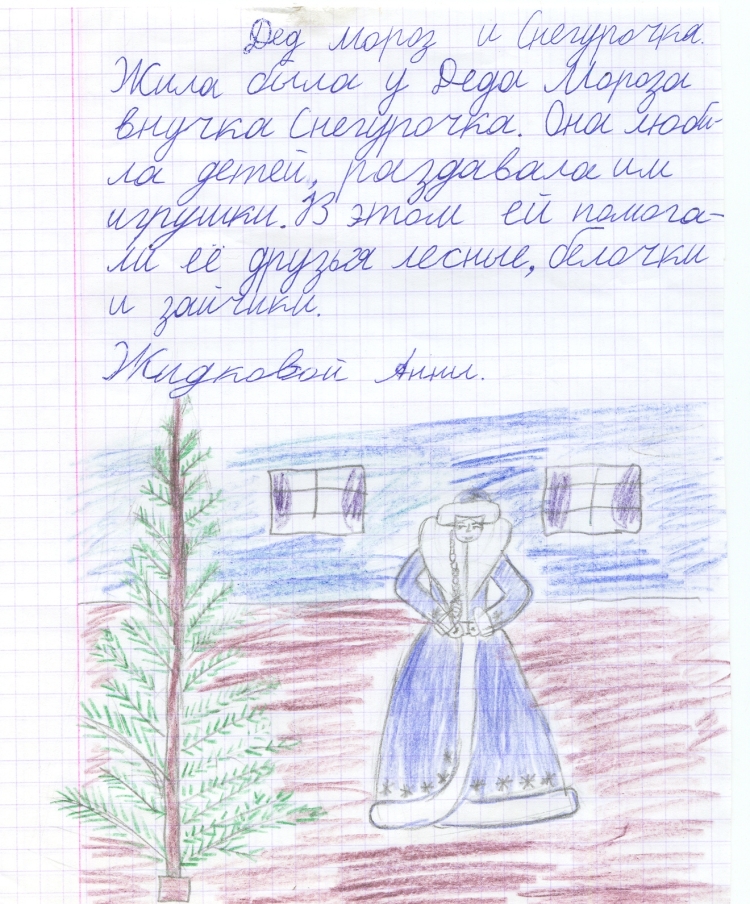 Дед Мороз и Снегурочка.
Жила была у Деда Мороза
внучка Снегурочка. Она люби-
ла детей, раздавала им
игрушки. В этом ей помога-
ли её друзья лесные, белочки
и зайчики.
Жидковой Анни.